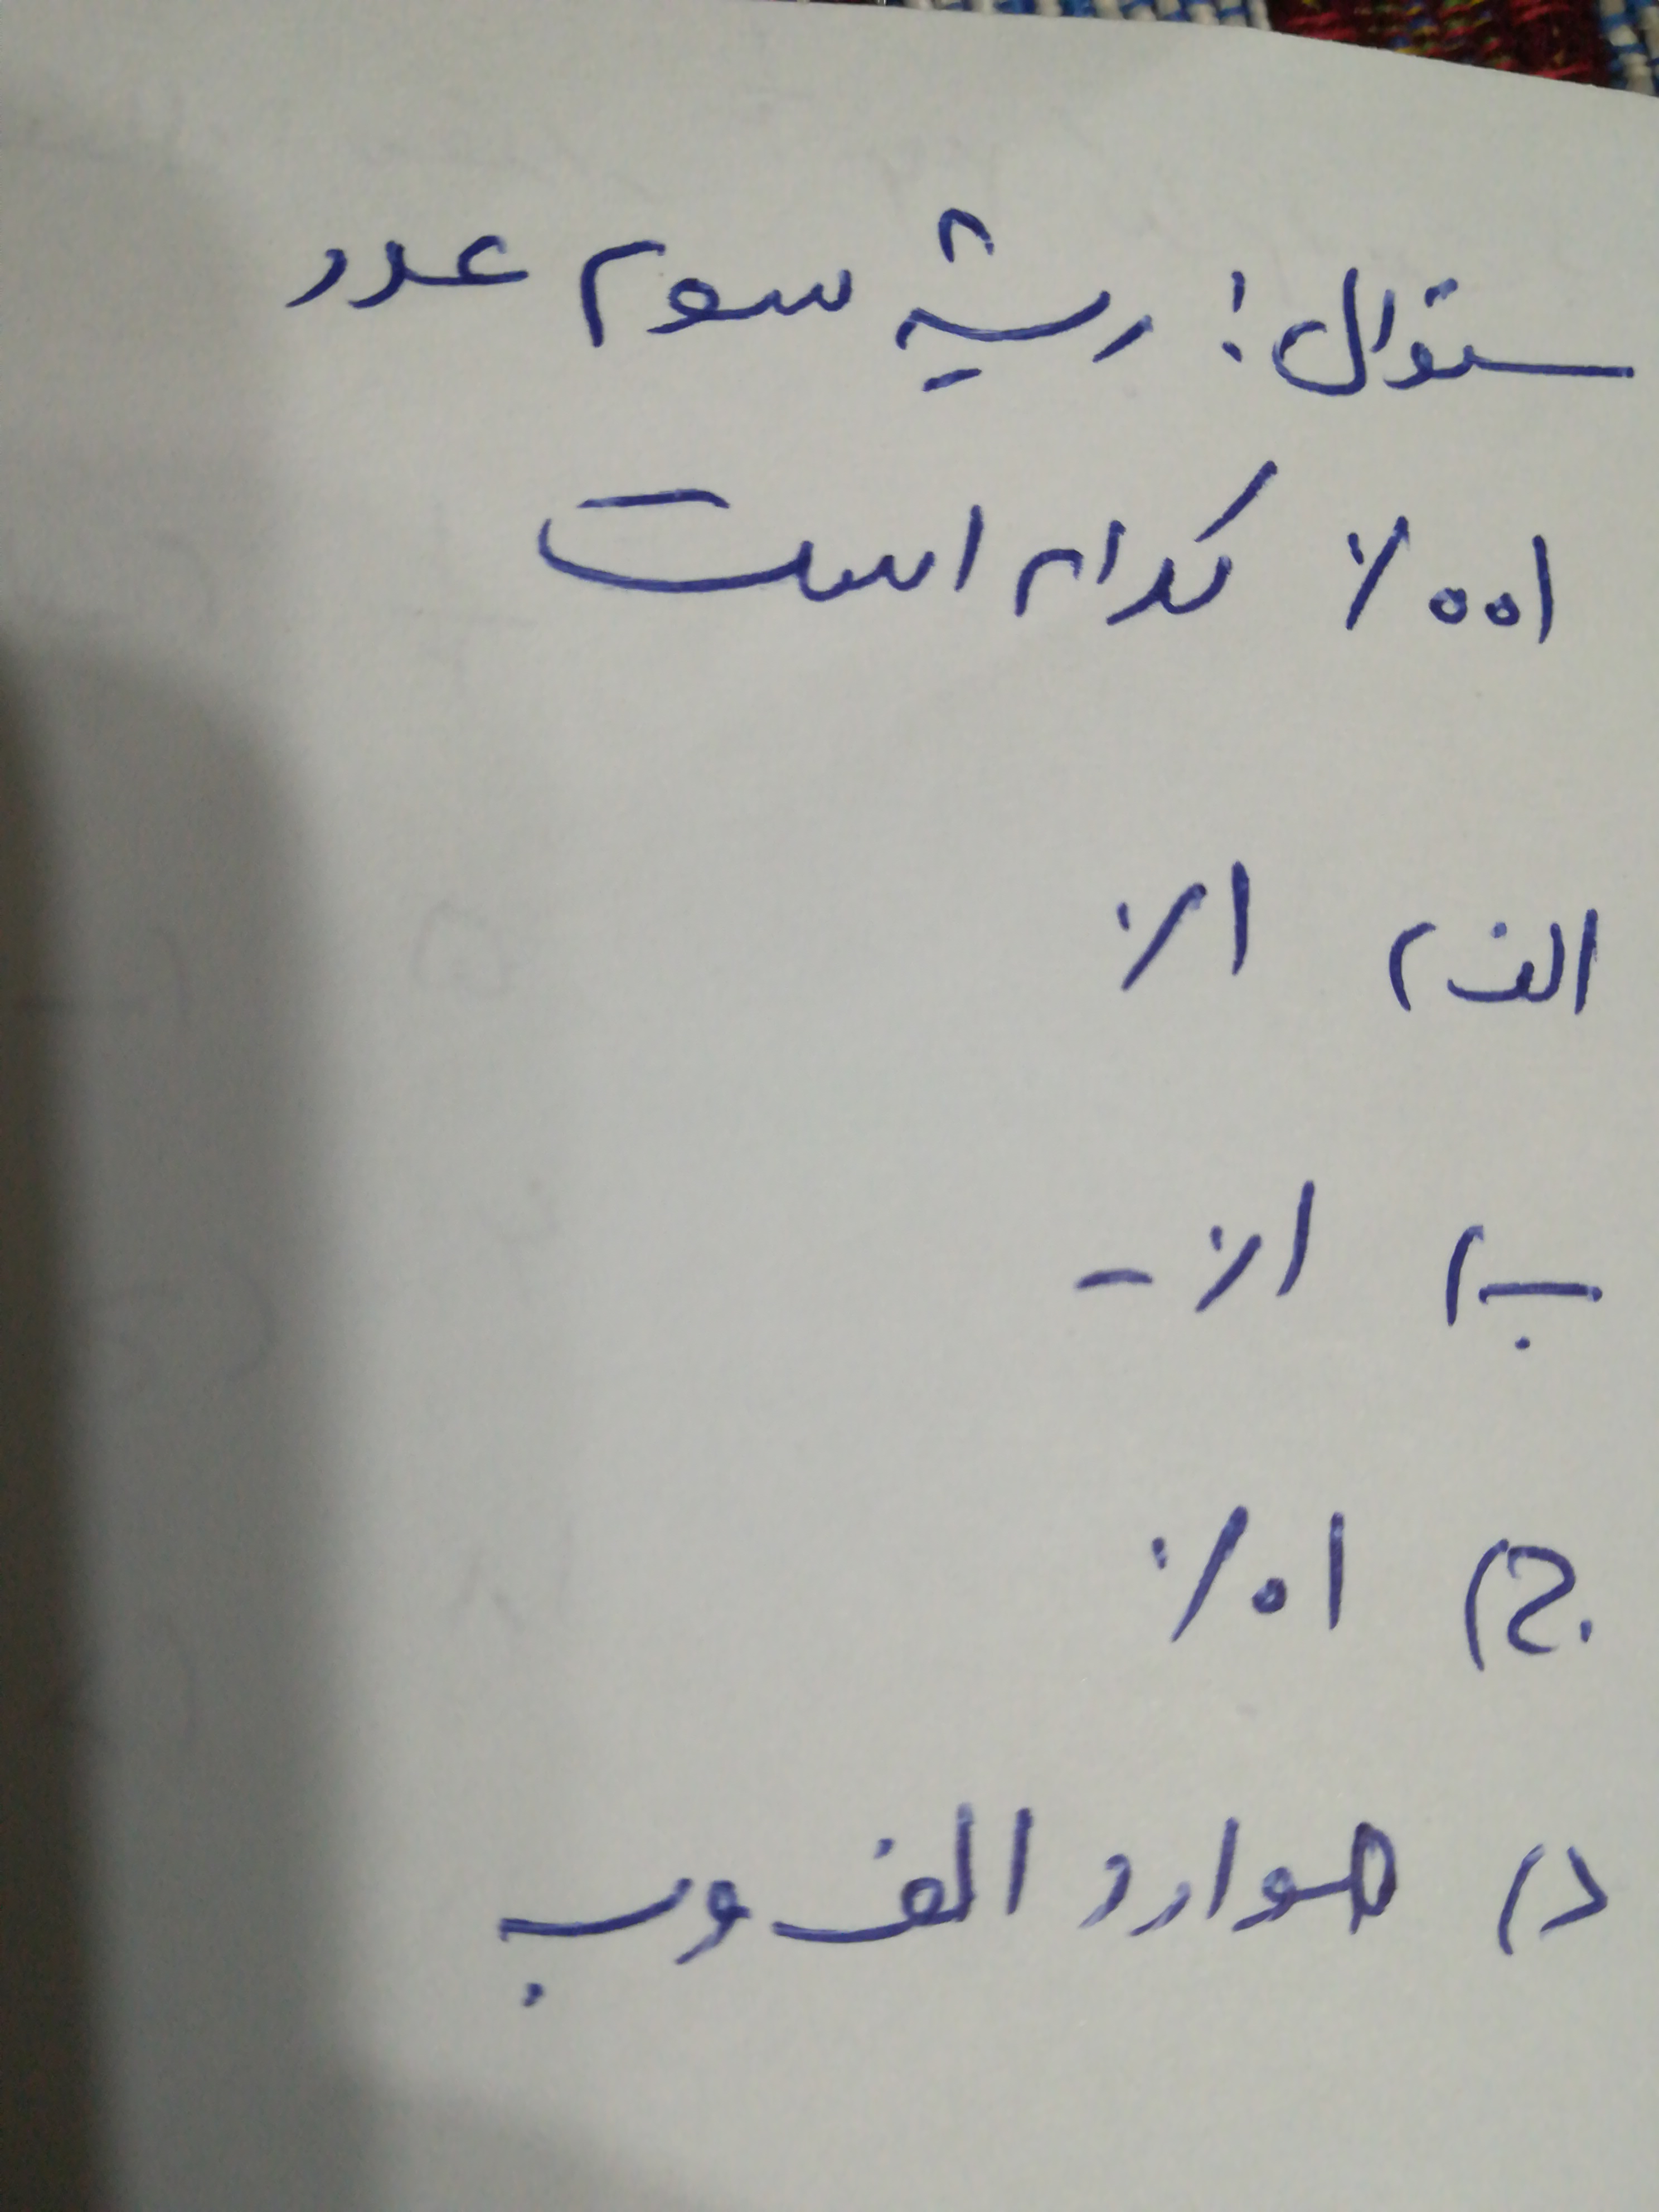 سئوال: ریشه سوم عدد
۰/۰۰۱ کدام است
الف) ۰/۱
ب) -۰/۱
ج) ۰/۰۱
د) موارد الف و ب